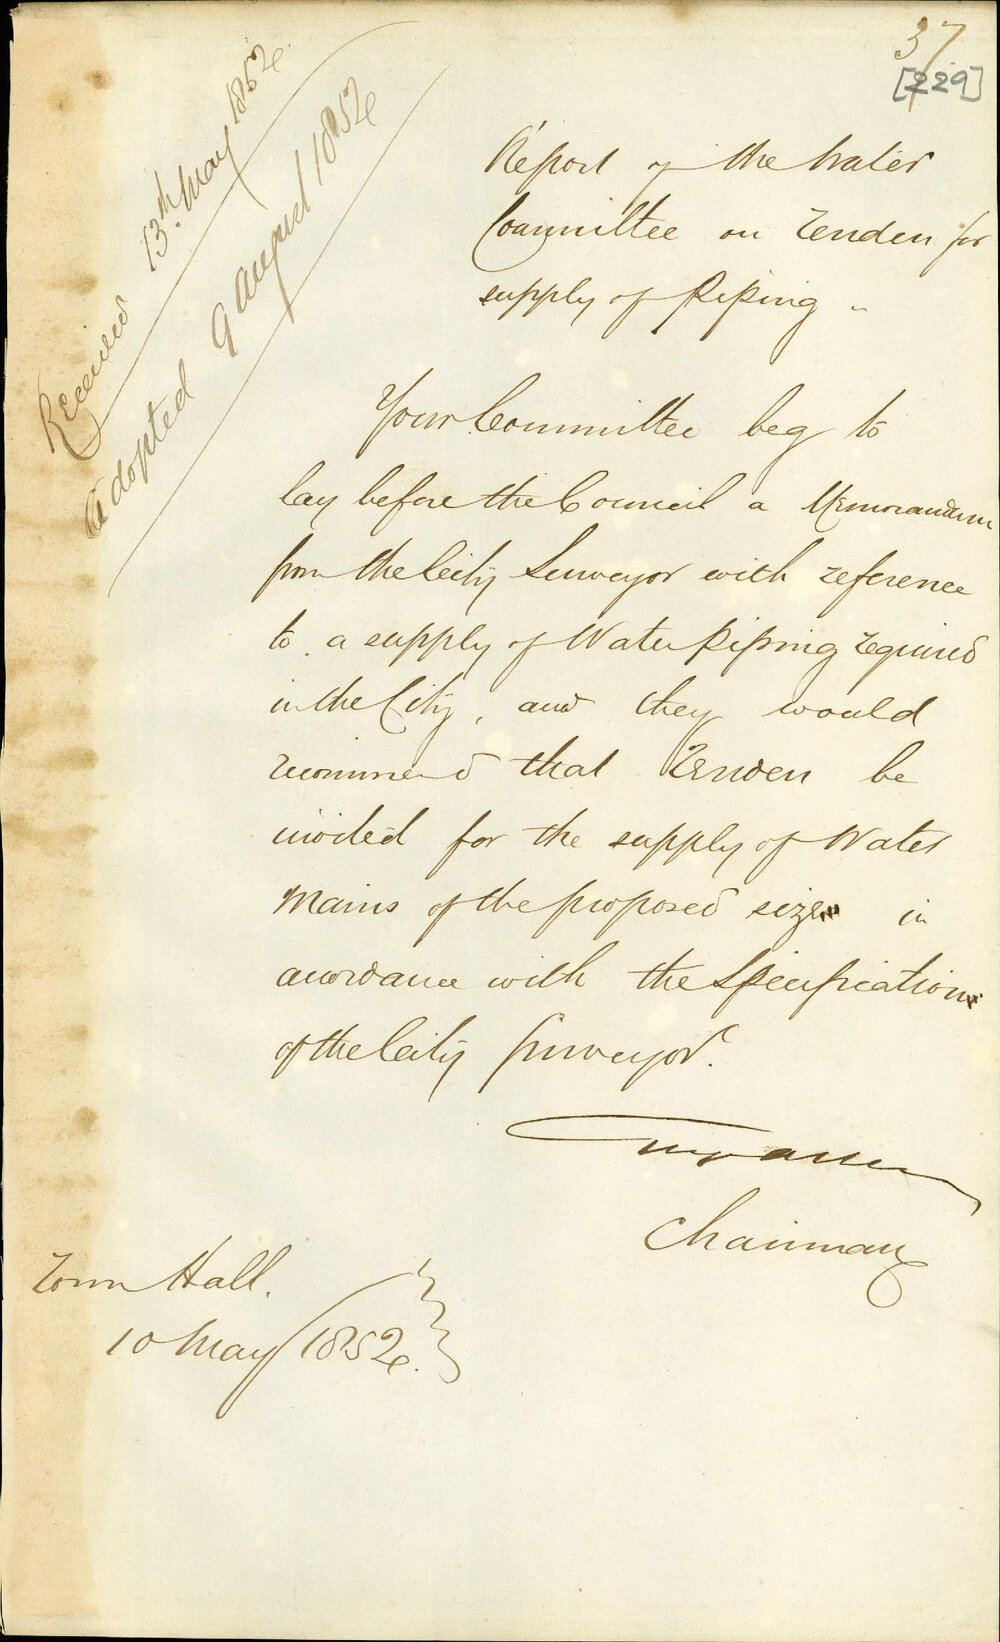 37
[229]
Received 13th May 1852.
Adopted 9 August 1852
Report of the Water
Committee on Tenders for
supply of Piping
Your Committee beg to
lay before the Council a Memorandum
from the City Surveyor with reference
to a supply of Water Piping required
in the City, and they would
recommend that Tenders be
invited for the supply of Water
Mains of the proposed sizes in
accordance with the Specification
of the City Surveyor.
Chairman
Town Hall.
10 May 1852.